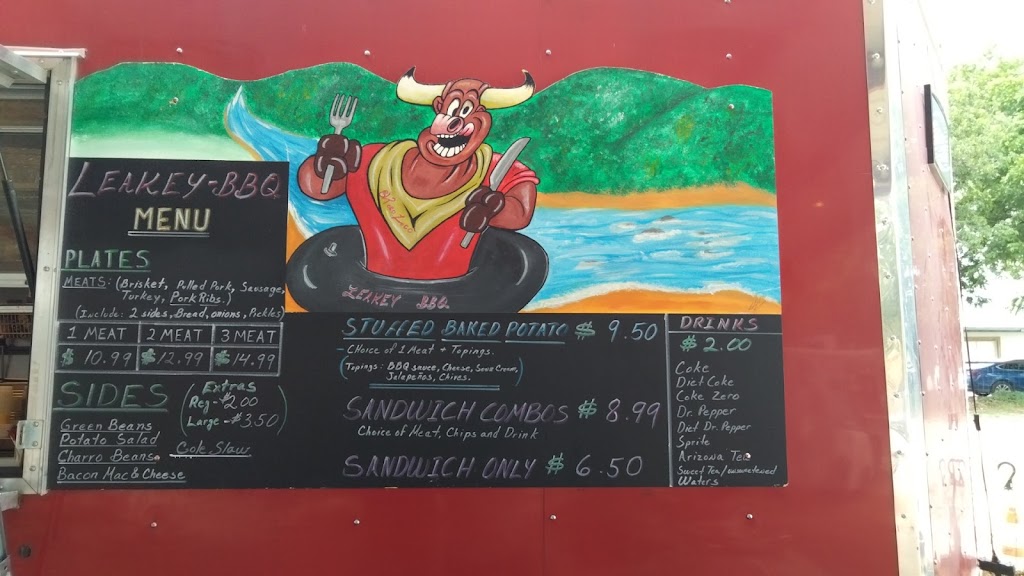 LEAKEY-BBQ
MENU
PLATES
MEATS: (Brisket, Pulled Pork, Sausage,
Turkey, Pork Ribs.)
(Include: 2 sides, Bread, onions, Pickles)
1 MEAT 2 MEAT 3 MEAT
$10.99 $12.99 $14.99
SIDES
(Extras
Reg-$2.00
Large-$3.50)
Green Beans
Potato Salad
Cole Slaw
Charro Beans
Bacon Mac & Cheese
LEAKEY BBQ
STUFFED BAKED POTATO $ 9.50
- Choice of 1 Meat + Topings.
(Topings: BBQ sauce, Cheese, Sour Cream,
Jalapeños, Chives.
SANDWICH COMBOS $ 8.99
Choice of Meat, Chips and Drink
SANDWICH ONLY $ 6.50
DRINKS
$ 2.00
Coke
Diet Coke
Coke Zero
Dr. Pepper
Diet Dr. Pepper
Sprite
Arizona Tea
Sweet Tea/unsweetened
Waters